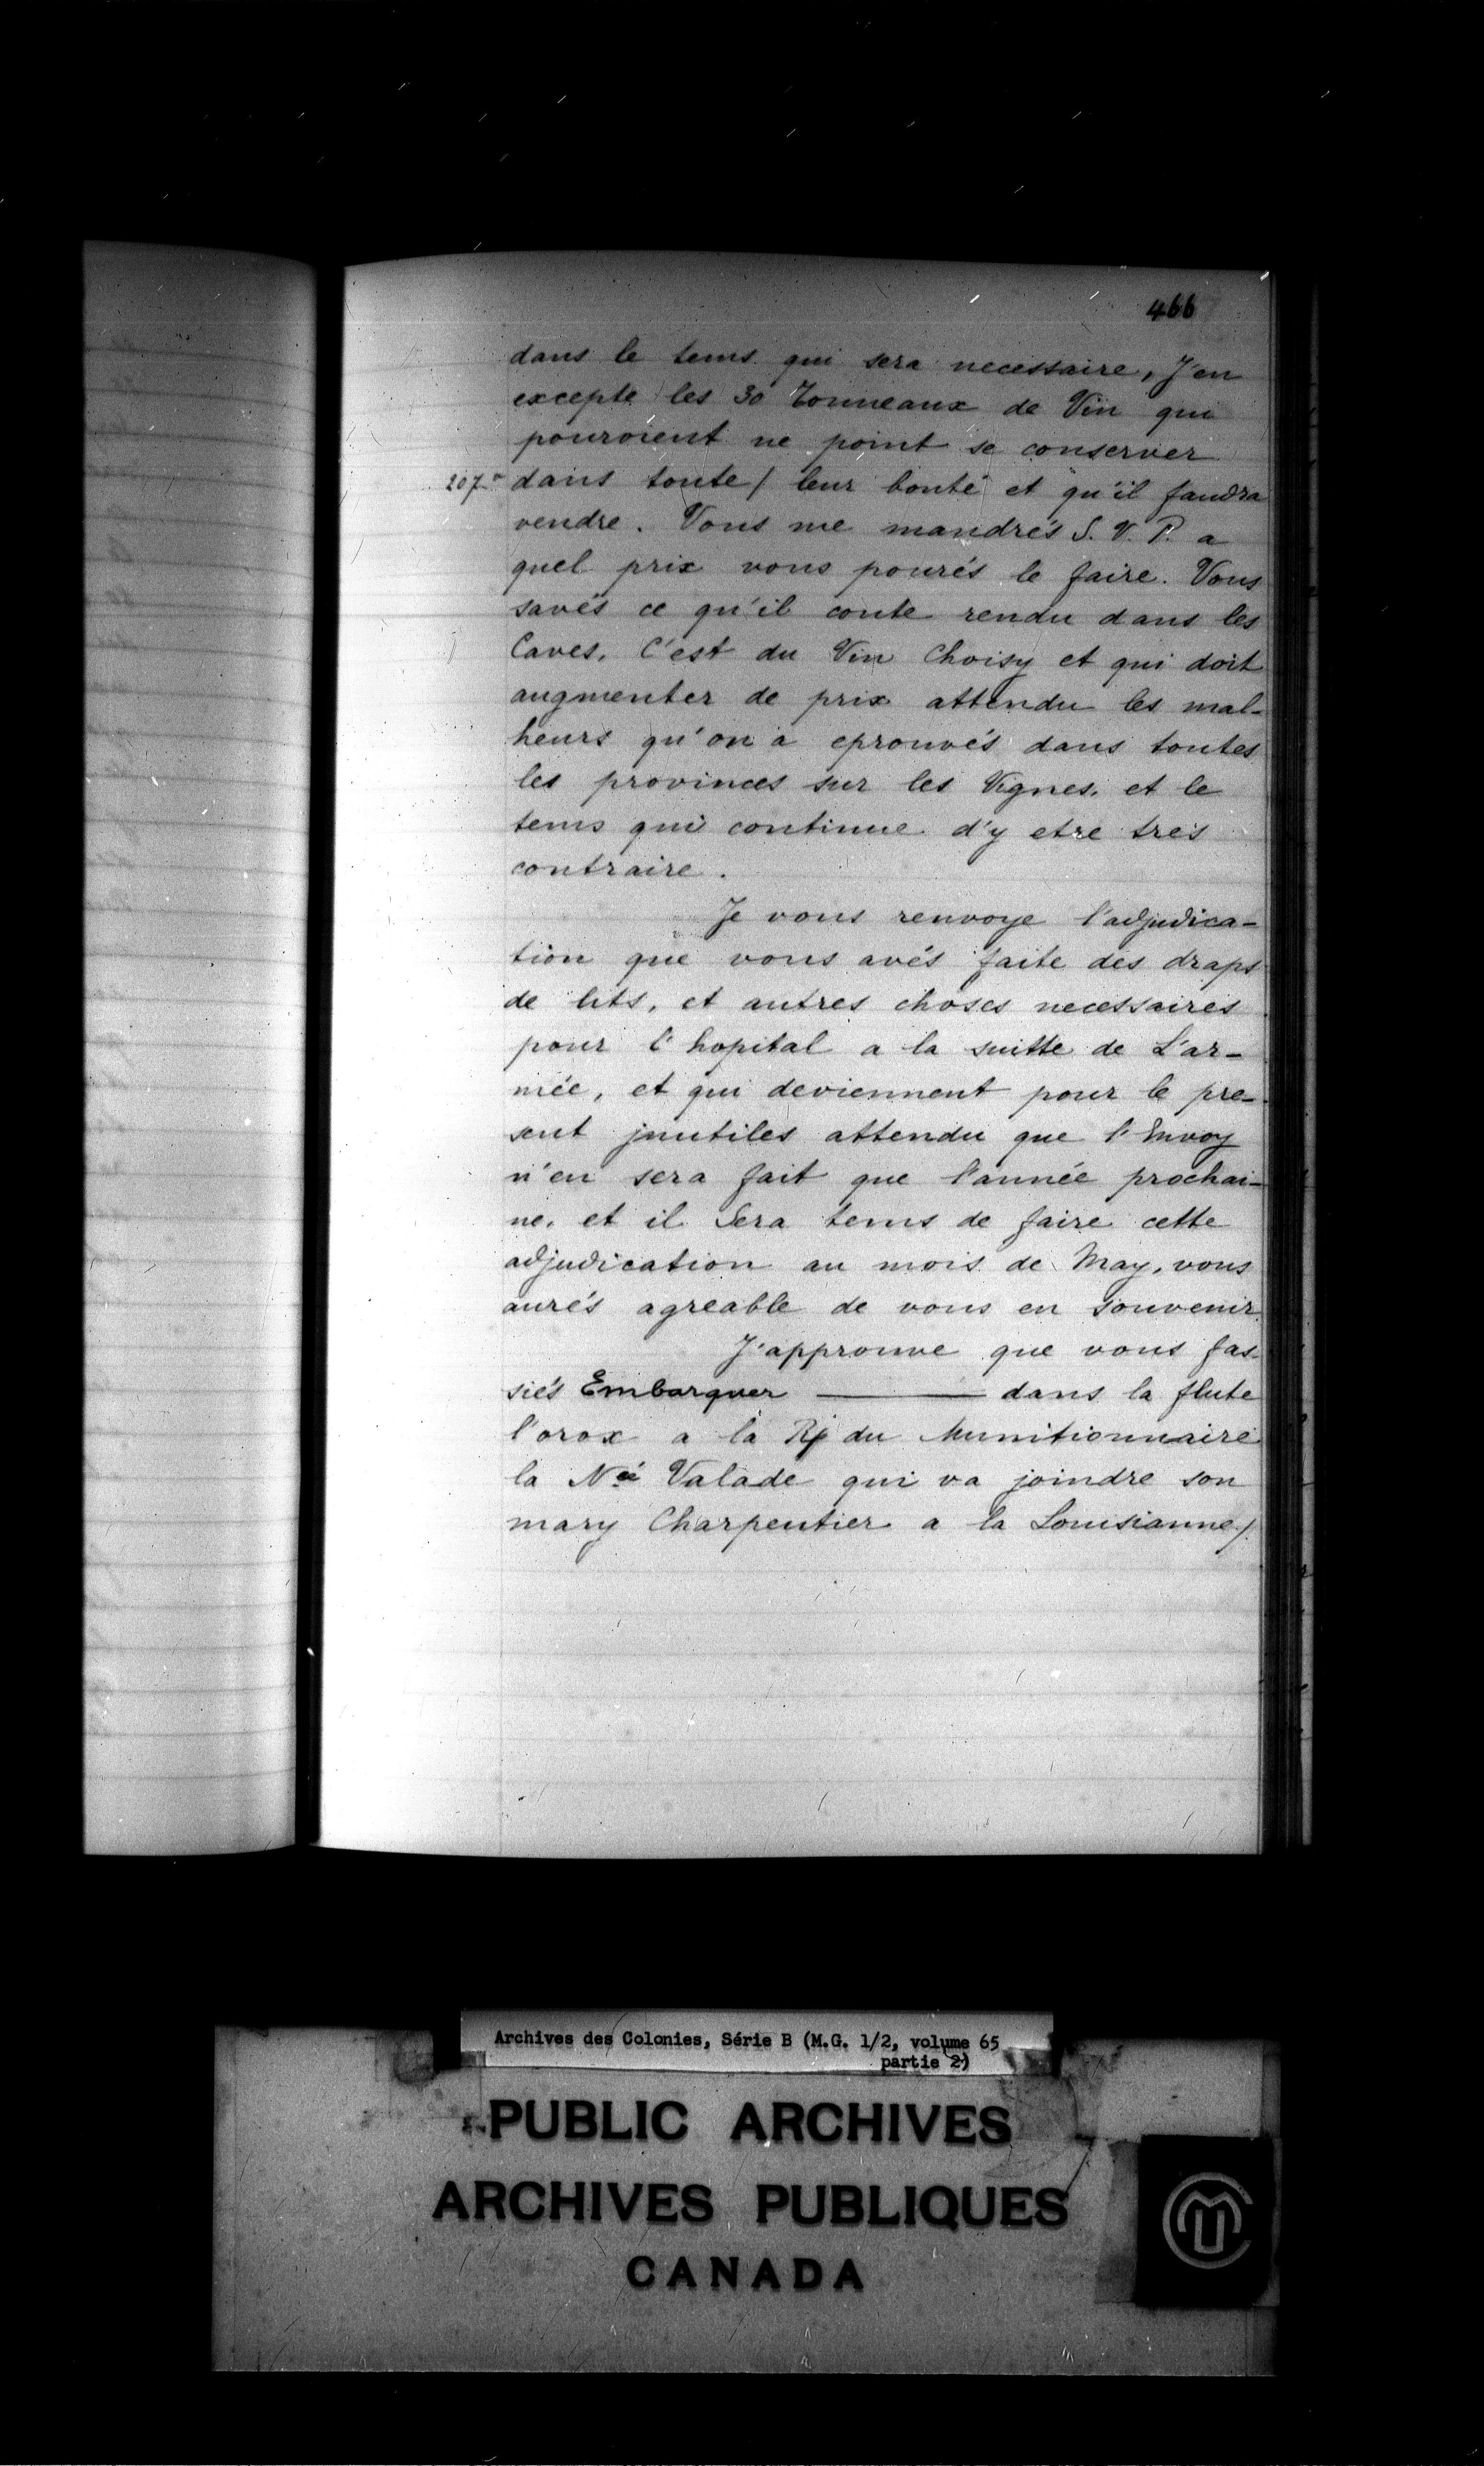 466
dans le tems qui sera necessaire, J'en
excepte les 30 Tonneaux de Vin qui
pouroient ne point se conserver
207vo dans toute/ leur bonté et qu'il faudra
vendre. Vous me mandrés S. V. P. a
quel prix vous pourés le faire. Vous
savés ce qu'il coute rendu dans les
Caves, C'est du Vin Choisy et qui doit
augmenter de prix attendu les mal-
heurs qu'on a eprouvés dans toutes
les provinces sur les Vignes, et le
tems qui continue d'y etre tres
contraire.
Je vous renvoye l'adjudica-
tion que vous avés faite des draps
de lits, et autres choses necessaires
pour l'hopital a la suitte de L'ar-
mée, et qui deviennent pour le pre-
sent jnutiles attendu que l'Envoy
n'en sera fait que l'année prochai-
ne, et il Sera tems de faire cette
adjudication au mois de May, vous
aurés agreable de vous en souvenir
J'approuve que vous fas-
siés Embarquer ——— dans la flute
l'orox a la du Munitionnaire
la Valade qui va joindre son
mary Charpentier a la Louisianne/.
Archives des Colonies, Série B (M.G. 1/2, volume 65
partie 2)
PUBLIC ARCHIVES
ARCHIVES PUBLIQUES
CANADA